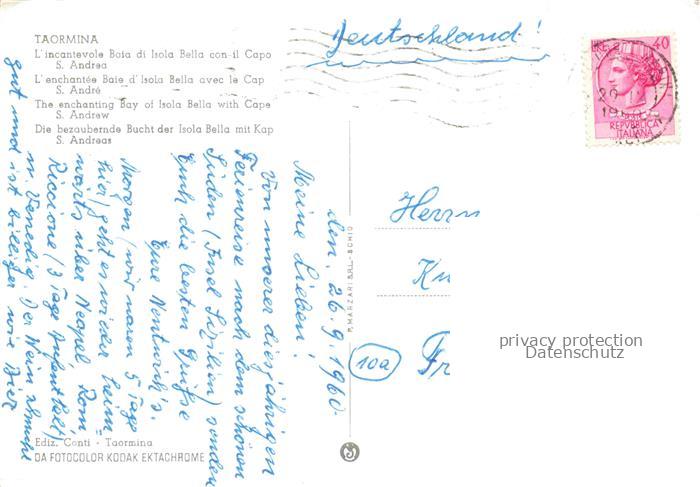 TAORMINA
L'incantevole Baia di Isola Bella con il Capo
S. Andrea
L'enchantée Baie d'Isola Bella avec le Cap
S. André
The enchanting Bay of Isola Bella with Cape
S. Andrew
Die bezaubernde Bucht der Isola Bella mit Kap
S. Andreas
Deutschland!
LIRE 40
REPVBBLICA
ITALIANA
den 26.9.1960
Meine Lieben!
Von unserer diesjährigen
Ferienreise nach dem schönen
Süden (Insel Sizilien) senden
Euch die besten Grüße
Eure
Morgen (wir waren 5 Tage
hier) geht es wieder heim-
wärts über Neapel, Rom,
Riccione (3 Tage Aufenthalt)
u. Venedig. Der Wein schmeckt
gut und ist billiger wie Bier
Herrn
10a
P. MARZARI S.R.L. - SCHIO
Ediz. Conti - Taormina
DA FOTOCOLOR KODAK EKTACHROME
privacy protection
Datenschutz